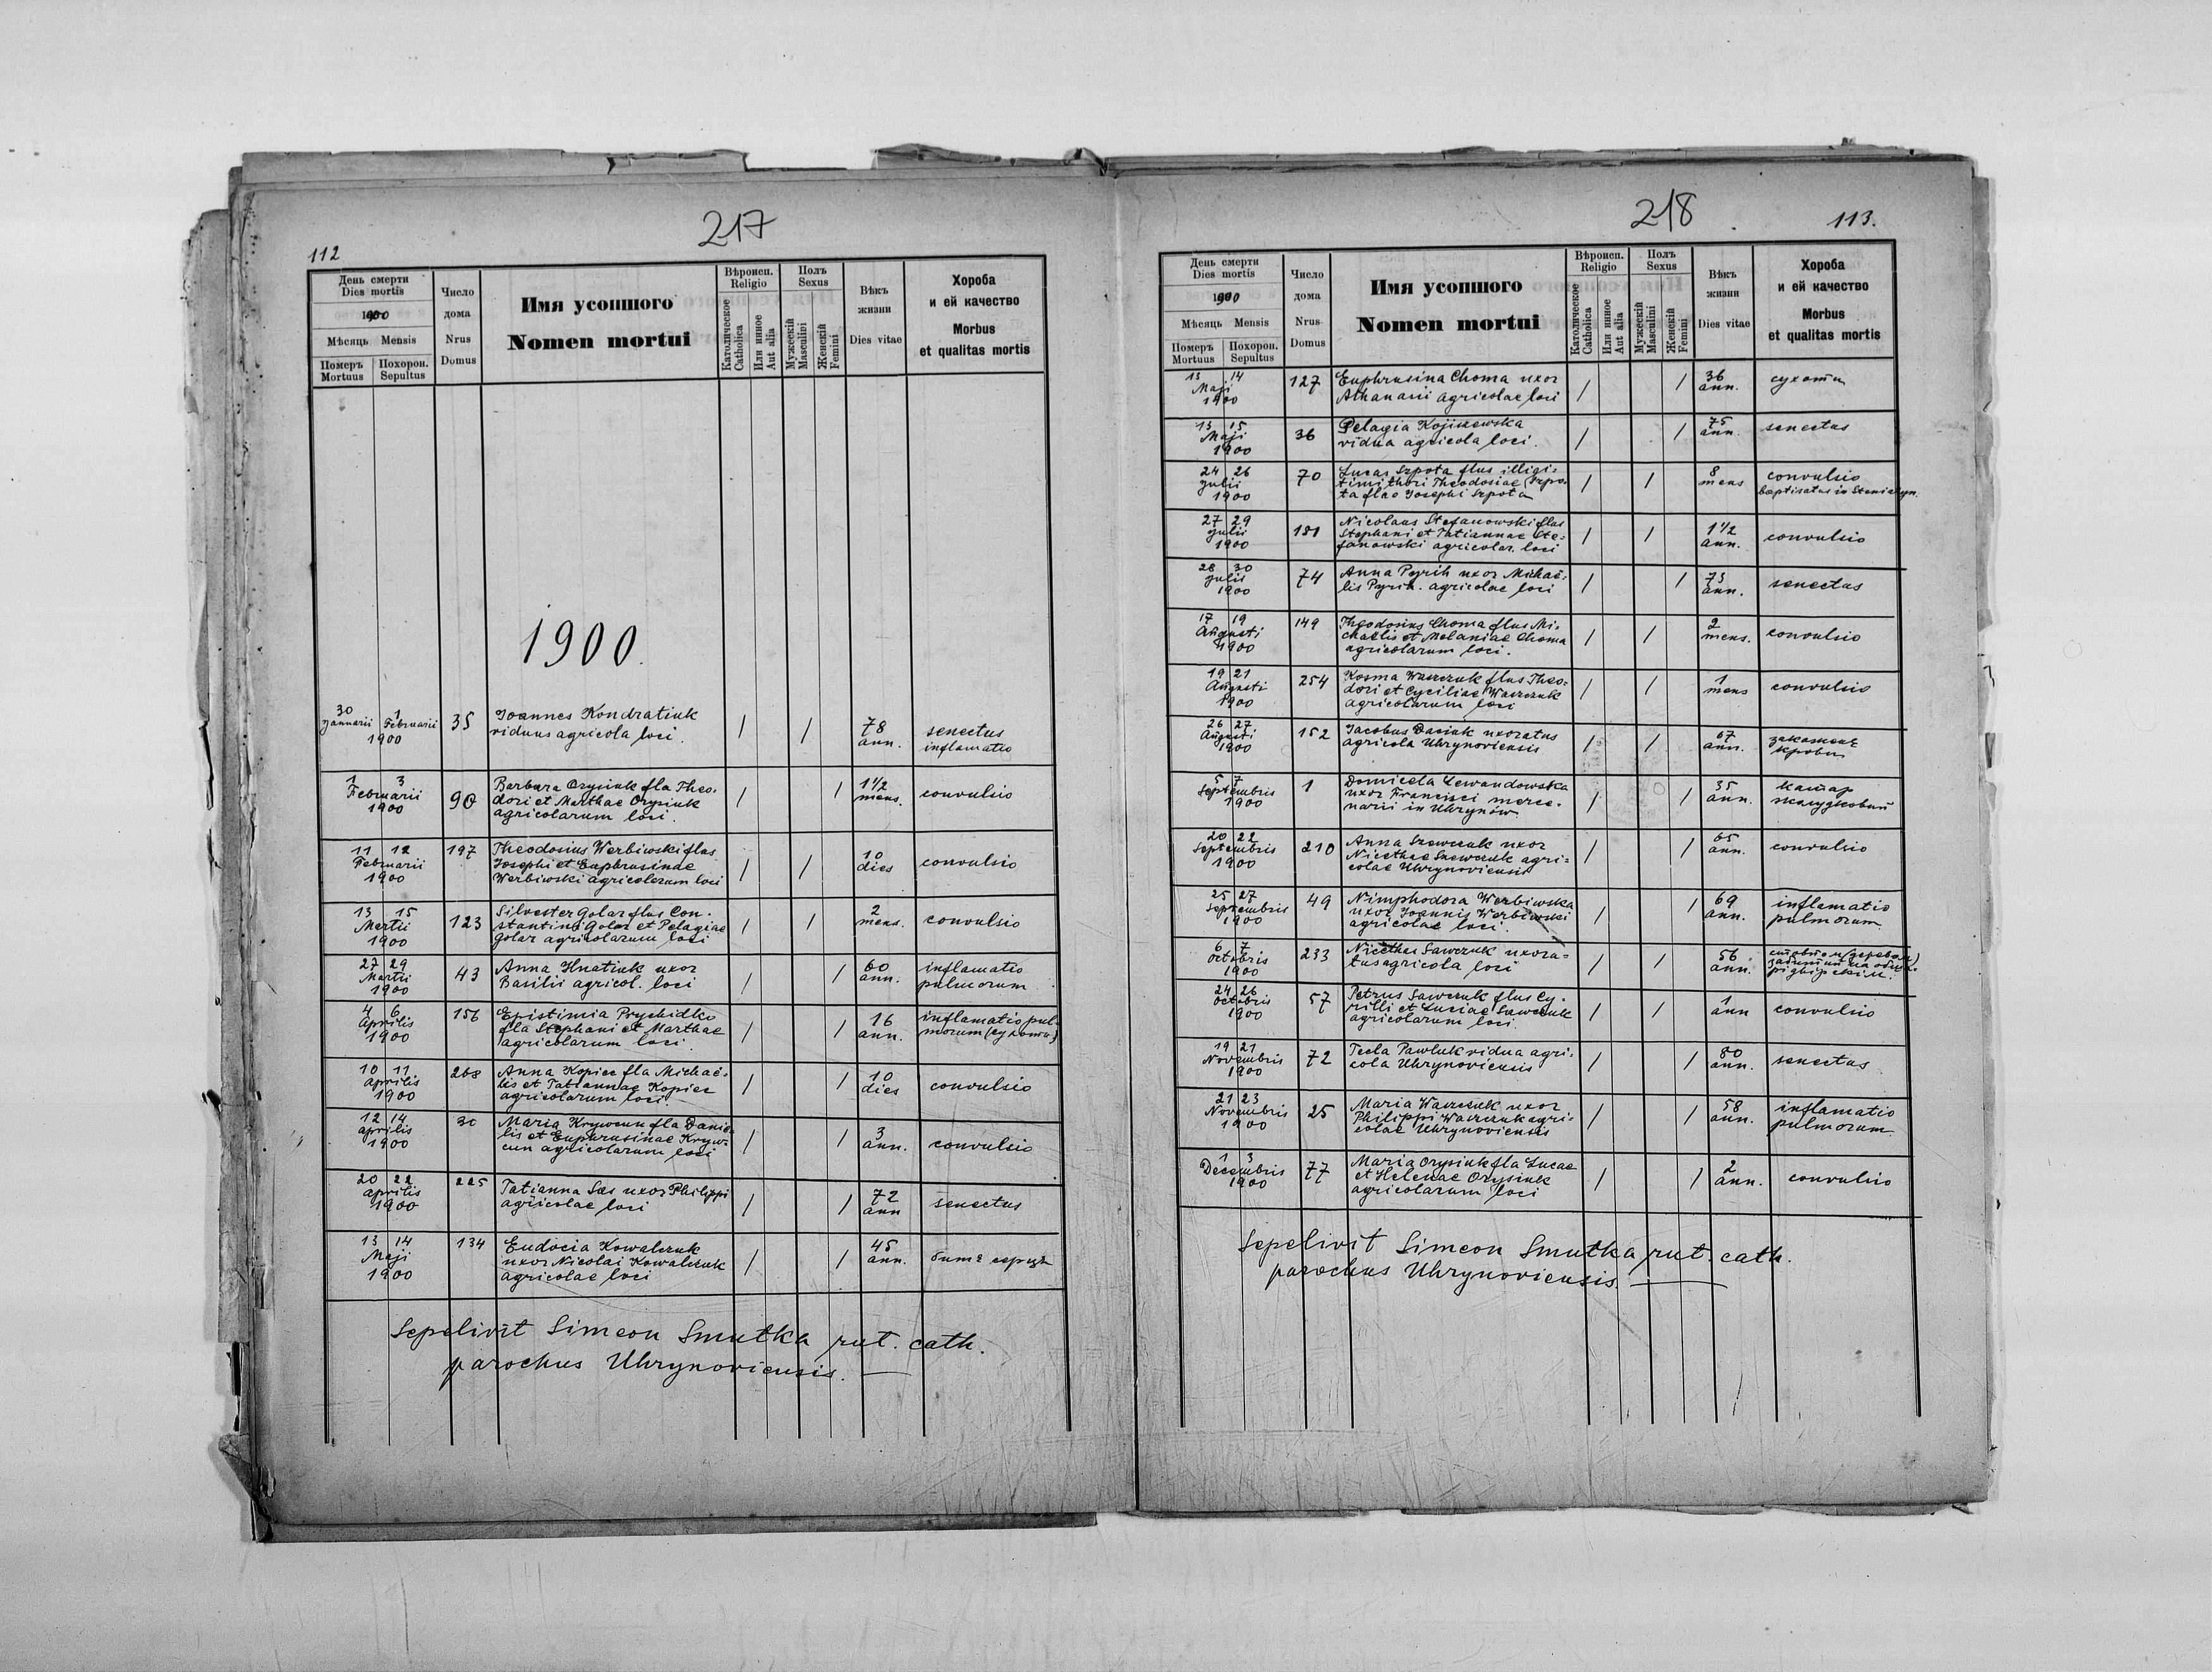 217
112
День смерти
Dies mortis
1900
Мѣсяць Mensis
Померъ Mortuus
Похорон. Sepultus
Число дома
Nrus Domus
Имя усопшого
Nomen mortui
Вѣроисп.
Religio
Католическое Catholica
Или инное Aut alia
Полъ
Sexus
Мужескій Masculini
Женскій Femini
Вѣкъ жизни
Dies vitae
Хороба
и ей качество
Morbus
et qualitas mortis
1900.
30 Januarii 1 Februarii 1900 35 Joannes Kondratiuk / / 78 ann. senectus
viduus agricola loci. inflamatio
1 3 Februarii 1900 90 Barbara Orysiuk fla Theo- / / 1 1/2 mens. convulsio
dori et Marthae Orysiuk
agricolarum loci.
11 12 Februarii 1900 197 Theodosius Werbiwski flus / / 10 dies convulsio
Josephi et Euphrusinae
Werbiwski agricolarum loci
13 15 Martii 1900 123 Silvester Golar flus Con- / / 2 mens. convulsio
stantini Golar et Pelagiae
Golar agricolarum loci
27 29 Martii 1900 43 Anna Hnatiuk uxor / / 60 ann. inflamatio
Basilii agricol. loci pulmorum
4 6 Aprilis 1900 156 Epistimia Prychidko / / 16 ann. inflamatio pul-
fla Stephani et Marthae morum (сухоты)
agricolarum loci.
10 11 Aprilis 1900 268 Anna Kopiec fla Michaë- / / 10 dies convulsio
lis et Tatiannae Kopiec
agricolarum loci.
12 14 Aprilis 1900 30 Maria Krywcun fla Danie- / / 3 ann. convulsio
lis et Euphrusinae Kryw-
cun agricolarum loci
20 22 Aprilis 1900 225 Tatianna Sas uxor Philippi / / 72 ann senectus
agricolae loci
13 14 Maji 1900 134 Eudocia Kowalczuk / / 45 ann. битѣ серця
uxor Nicolai Kowalczuk
agricolae loci
Sepelivit Simeon Smutka rut. cath.
parochus Uhrynoviensis.
218
113.
День смерти
Dies mortis
1900
Мѣсяць Mensis
Померъ Mortuus
Похорон. Sepultus
Число дома
Nrus Domus
Имя усопшого
Nomen mortui
Вѣроисп.
Religio
Католическое Catholica
Или инное Aut alia
Полъ
Sexus
Мужескій Masculini
Женскій Femini
Вѣкъ жизни
Dies vitae
Хороба
и ей качество
Morbus
et qualitas mortis
13 14 Maji 1900 127 Euphrusina Choma uxor / / 36 ann. сухоты
Athanasii agricolae loci
13 15 Maji 1900 36 Pelagia / / 75 ann. senectus
vidua agricola loci.
24 26 Julii 1900 70 Lucas Szpota flus illigi- / / 8 mens convulsio
timi thori Theodosiae Szpo- baptisatus in
ta flae Josephi Szpota
27 29 Julii 1900 181 Nicolaus Stefanowski flus / / 1 1/2 ann. convulsio
Stephani et Tatiannae Ste-
fanowski agricolar. loci
28 30 Julii 1900 74 Anna Pyrih uxor Michaë- / / 73 ann. senectus
lis Pyrih. agricolae loci
17 19 Augusti 1900 149 Theodosius Choma flus Mi- / / 2 mens. convulsio
chaelis et Melaniae Choma
agricolarum loci.
19 21 Augusti 1900 254 Kosma Waszczuk flus Theo- / / 1 mens convulsio
dori et Cyciliae Waszczuk
agricolarum loci
26 27 Augusti 1900 152 Jacobus Dasiuk uxoratus / / 67 ann. закаженє
agricola Uhrynoviensis крови
5 7 Septembris 1900 1 Domicela Lewandowska / / 35 ann. катар
uxor Francisci merce- жолудковий
narii in Uhrynów
20 22 Septembris 1900 210 Anna Szewczuk uxor / / 65 ann. convulsio
Nicethae Szewczuk agri-
colae Uhrynoviensis
25 27 Septembris 1900 49 Nimphodora Werbiwska / / 69 ann. inflamatio
uxor Joannis Werbiwski pulmorum
agricolae loci.
6 7 Octobris 1900 233 Nicethas Sawczuk uxora- / / 56 ann.
tus agricola loci
24 26 Octobris 1900 57 Petrus Sawczuk flus Cy- / / 1 ann convulsio
rilli et Luciae Sawczuk
agricolarum loci.
19 21 Novembris 1900 72 Tecla Pawluk vidua agri- / / 80 ann. senectus
cola Uhrynoviensis
21 23 Novembris 1900 25 Maria Waszczuk uxor / / 58 ann. inflamatio
Philippi Waszczuk agri- pulmorum
colae Uhrynoviensis
1 3 Decembris 1900 77 Maria Orysiuk fla Lucae / / 2 ann. convulsio
et Helenae Orysiuk
agricolarum loci
Sepelivit Simeon Smutka rut. cath.
parochus Uhrynoviensis.